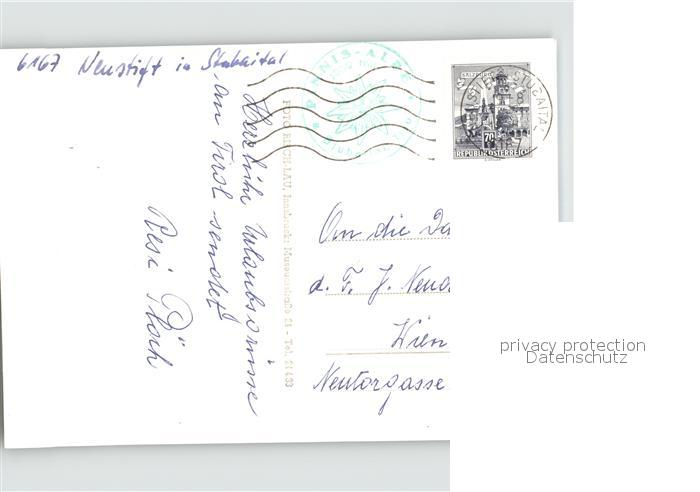 6167 Neustift in Stubaital
Herzliche Urlaubsgrüsse
aus Tirol sendet
Resi
FOTO RISCH-LAU, Innsbruck: Museumstraße 21 - Tel. 21433
SALZBURG
70
REPUBLIK ÖSTERREICH
STUBAITAL
An die
d. F. J.
Wien
Neutorgasse
privacy protection
Datenschutz